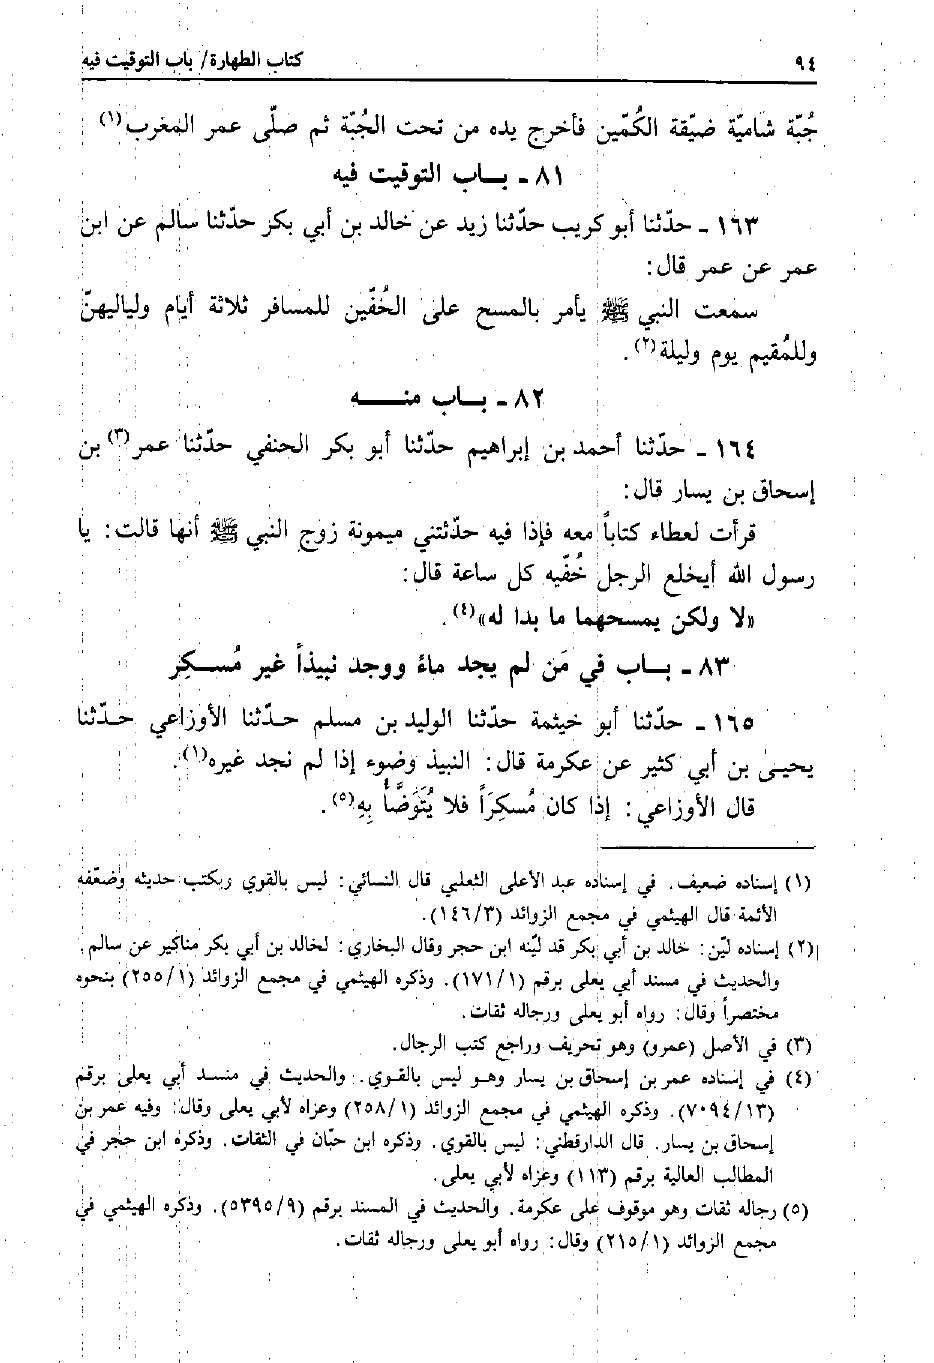 ٩٤
كتاب الطهارة/ باب التوقيت فيه
جُبّة شاميّة ضيّقة الكُمّين فأخرج يده من تحت الجُبّة ثم صلّى عمر المغرب(١)
٨١ - بـاب التوقيت فيه
١٦٣ - حدّثنا أبو كريب حدّثنا زيد عن خالد بن أبي بكر حدّثنا سالم عن ابن
عمر عن عمر قال:
سمعت النبي ﷺ يأمر بالمسح على الخُفّين للمسافر ثلاثة أيام ولياليهنّ
وللمُقيم يوم وليلة(٢).
٨٢ - بـاب منـــه
١٦٤ - حدّثنا أحمد بن إبراهيم حدّثنا أبو بكر الحنفي حدّثنا عمر(٣) بن
إسحاق بن يسار قال:
قرأت لعطاء كتاباً معه فإذا فيه حدّثتني ميمونة زوج النبي ﷺ أنها قالت: يا
رسول الله أيخلع الرجل خُفّيه كل ساعة قال:
«لا ولكن يمسحهما ما بدا له»(٤).
٨٣ - بـاب في مَن لم يجد ماءً ووجد نبيذاً غير مُسـكِر
١٦٥ - حدّثنا أبو خيثمة حدّثنا الوليد بن مسلم حـدّثنا الأوزاعي حـدّثنا
يحيـى بن أبي كثير عن عكرمة قال: النبيذ وضوء إذا لم نجد غيره(١).
قال الأوزاعي: إذا كان مُسكِرَاً فلا يُتَوَضَّأُ بِهِ(٥).
(١) إسناده ضعيف. في إسناده عبد الأعلى الثعلبي قال النسائي: ليس بالقوي ويكتب حديثه وضعّفه
الأئمة قال الهيثمي في مجمع الزوائد (١٤٦/٣).
(٢) إسناده ليّن: خالد بن أبي بكر قد ليّنه ابن حجر وقال البخاري: لخالد بن أبي بكر مناكير عن سالم.
والحديث في مسند أبي يعلى برقم (١٧١/١). وذكره الهيثمي في مجمع الزوائد (٢٥٥/١) بنحوه
مختصراً وقال: رواه أبو يعلى ورجاله ثقات.
(٣) في الأصل (عمرو) وهو تحريف وراجع كتب الرجال.
(٤) في إسناده عمر بن إسحاق بن يسار وهـو ليس بالقوي. والحديث في منسد أبي يعلى برقم
(٧٠٩٤/١٣). وذكره الهيثمي في مجمع الزوائد (٢٥٨/١) وعزاه لأبي يعلى وقال: وفيه عمر بن
إسحاق بن يسار. قال الدارقطني: ليس بالقوي. وذكره ابن حبّان في الثقات. وذكره ابن حجر في
المطالب العالية برقم (١١٣) وعزاه لأبي يعلى.
(٥) رجاله ثقات وهو موقوف على عكرمة. والحديث في المسند برقم (٥٣٩٥/٩). وذكره الهيثمي في
مجمع الزوائد (٢١٥/١) وقال: رواه أبو يعلى ورجاله ثقات.